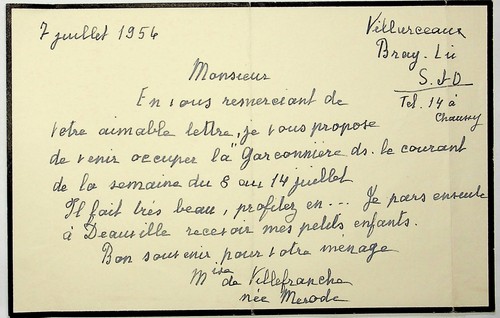 7 juillet 1956
Villarceaux
Bray-Lû
S. & O
Tel. 14 à
Chaussy
Monsieur
En vous remerciant de
votre aimable lettre, je vous propose
de venir occuper la "Garçonnière ds. le courant
de la semaine du 8 au 14 juillet
Il fait très beau, profitez en... Je pars ensuite
à Deauville recevoir mes petits enfants.
Bon souvenir pour votre ménage
Mise de Villefranche
née Merode